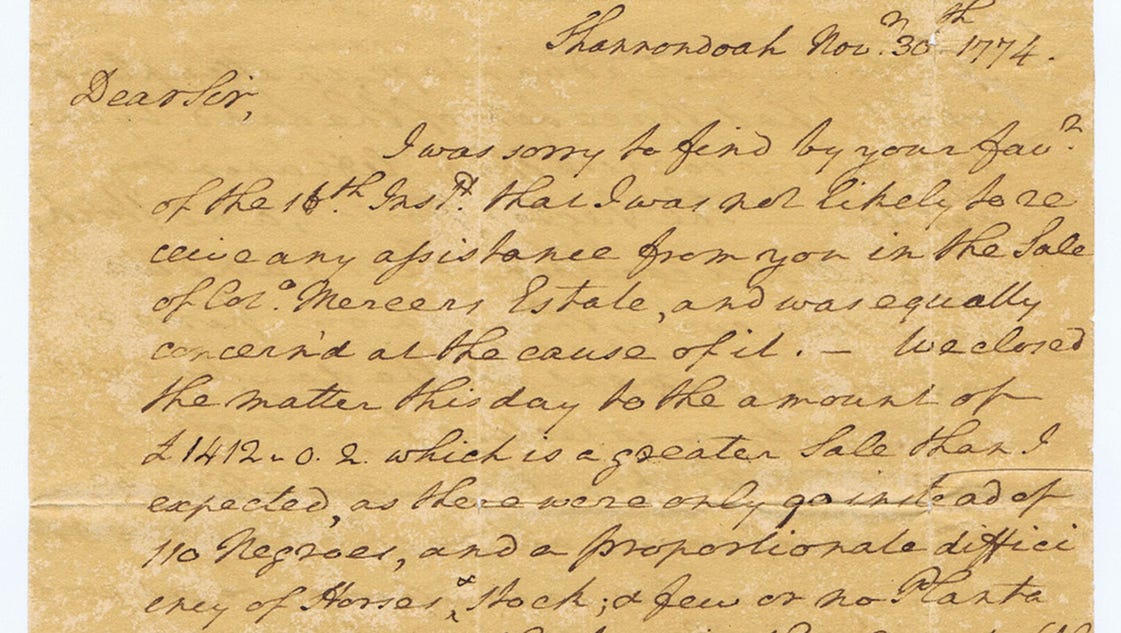 Shannondoah Nov.r 30th 1774.
Dear Sir,
I was sorry to find by your fav.r
of the 16th. Inst.t that I was not likely to re
ceive any assistance from you in the Sale
of Col.o Mercers Estate, and was equally
concern'd at the cause of it. — We closed
the matter this day to the amount of
£1412.. 0. 2. which is a greater Sale than I
expected, as there were only 90 instead of
110 Negroes, and a proportionate diffici
ency of Horses, & Stock; & few or no Planta